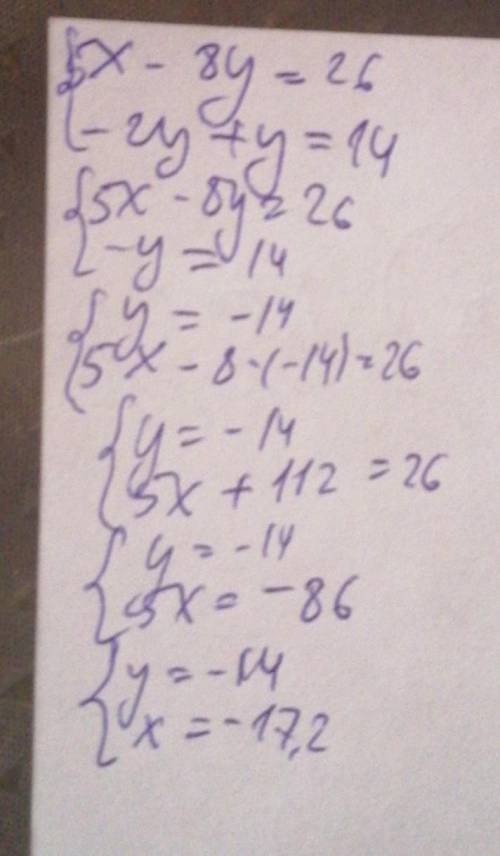 5x - 8y = 26
- 2y + y = 14
5x - 8y = 26
- y = 14
y = - 14
5x - 8 · (-14) = 26
y = - 14
5x + 112 = 26
y = - 14
5x = - 86
y = - 14
x = - 17,2